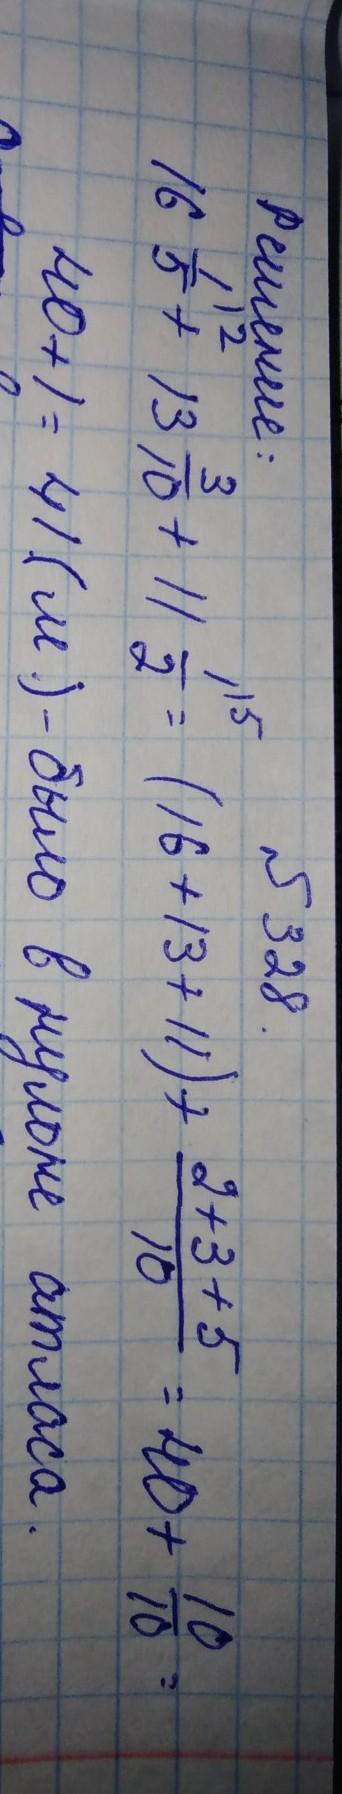 № 328.
Решение:
16 1/5 |2 + 13 3/10 + 11 1/2 |5 = (16 + 13 + 11) + (2 + 3 + 5)/10 = 40 + 10/10 =
40 + 1 = 41 (м.) - было в рулоне атласа.